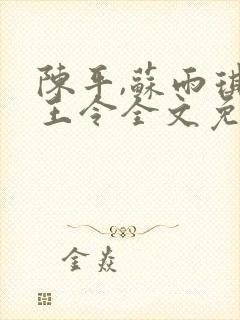 陳平,蘇雨琪
王令全文免
金焱